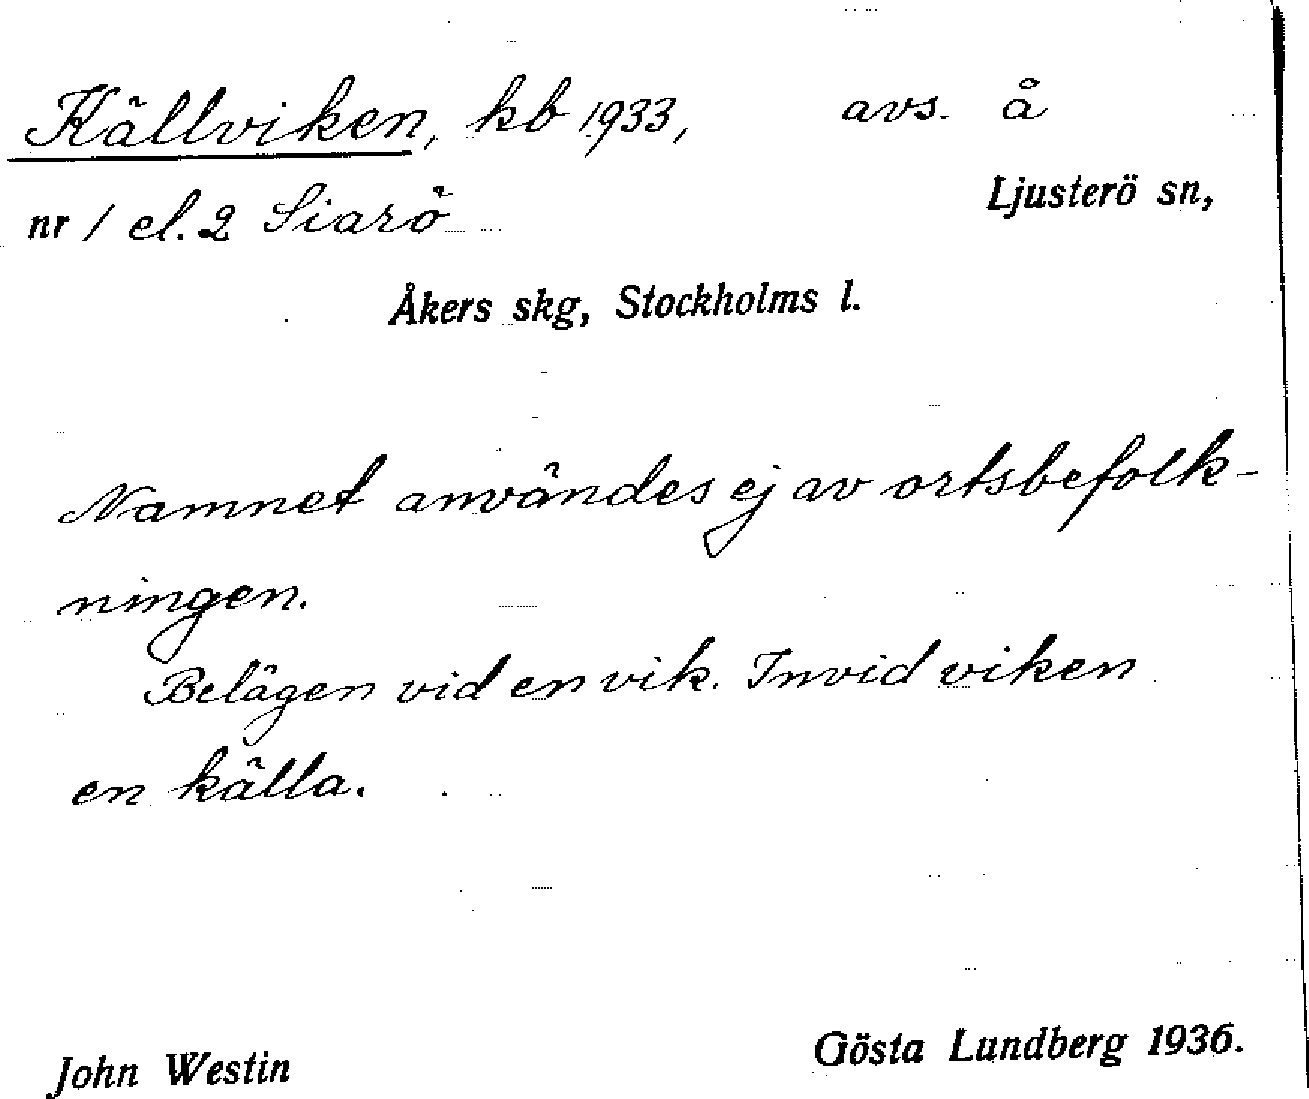 Källviken, kb 1933, avs. å
Ljusterö sn,
nr 1 el. 2 Siarö
Åkers skg, Stockholms l.
Namnet användes ej av ortsbefolk-
ningen.
Belägen vid en vik. Invid viken
en källa.
John Westin
Gösta Lundberg 1936.